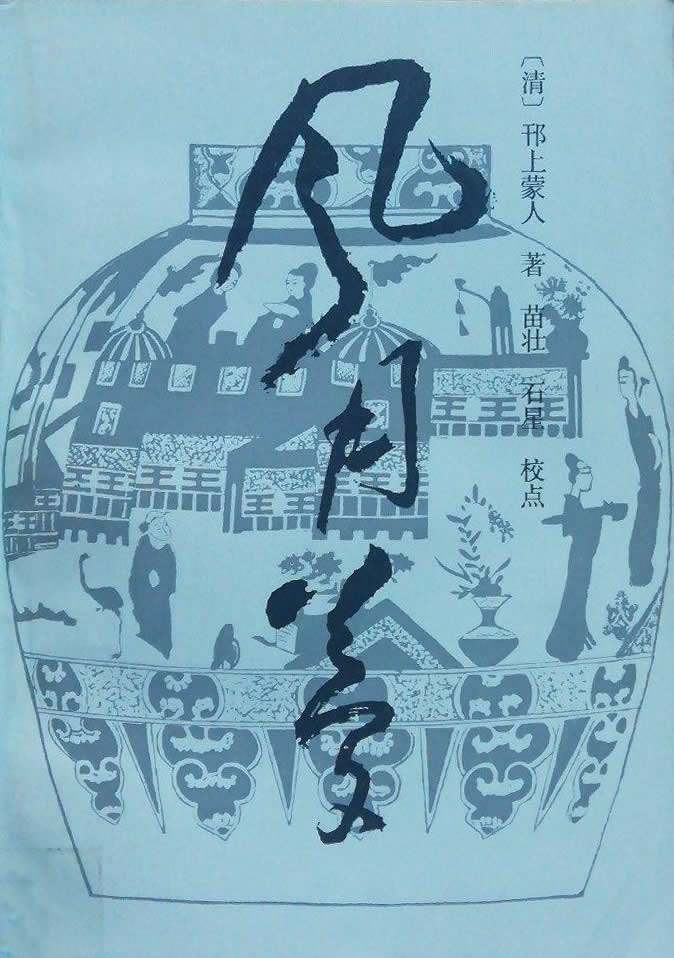 〔清〕邗上蒙人 著 苗壮 石星 校点
风月梦